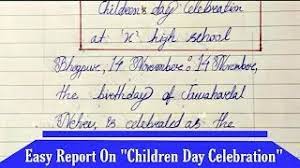 Children's day Celebration
at 'X' high school
Bhojpur, 14 November: 14 November,
the birthday of Jawaharlal
Nehru, is celebrated as the
Easy Report On "Children Day Celebration"